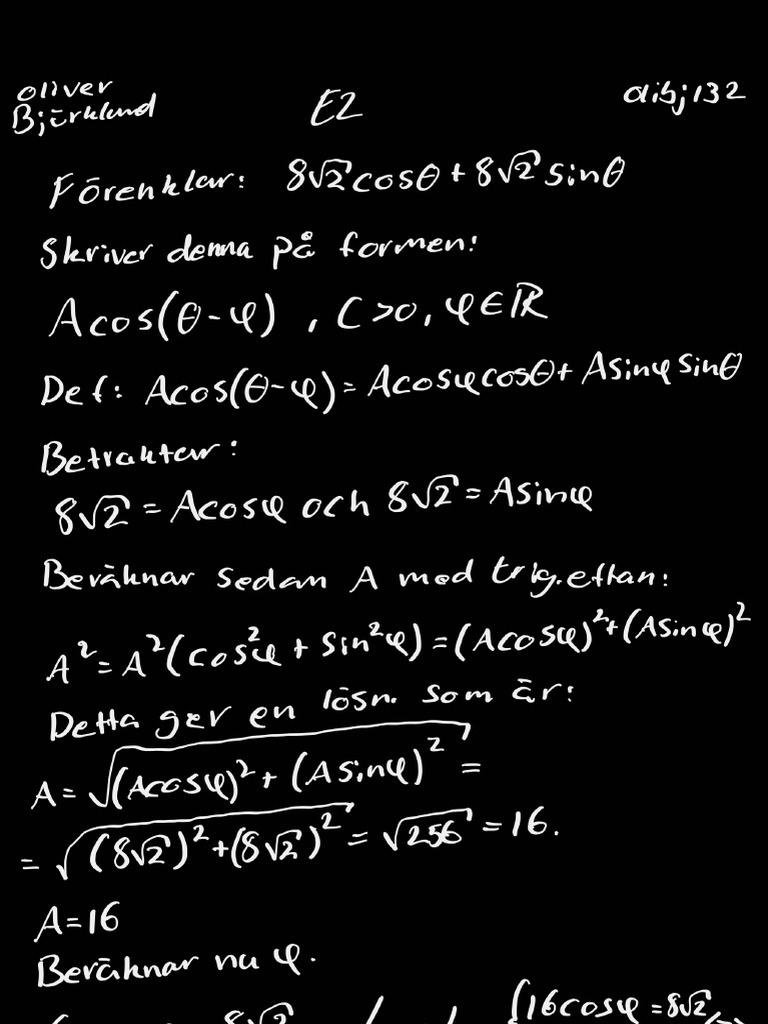 Oliver E2 aibj132
Björklund
Förenklar: 8√2 cosθ + 8√2 sinθ
Skriver denna på formen:
Acos(θ-φ) , C>0, φ∈ℝ
Def: Acos(θ-φ)=Acosφcosθ+Asinφsinθ
Betraktar:
8√2 = Acosφ och 8√2 = Asinφ
Beräknar sedan A med trig.ettan:
A²=A²(cos²φ + sin²φ)=(Acosφ)²+(Asinφ)²
Detta ger en lösn. som är:
A=√((Acosφ)²+(Asinφ)²) =
= √((8√2)²+(8√2)²) = √256 = 16.
A=16
Beräknar nu φ.
8√2 {16cosφ = 8√2